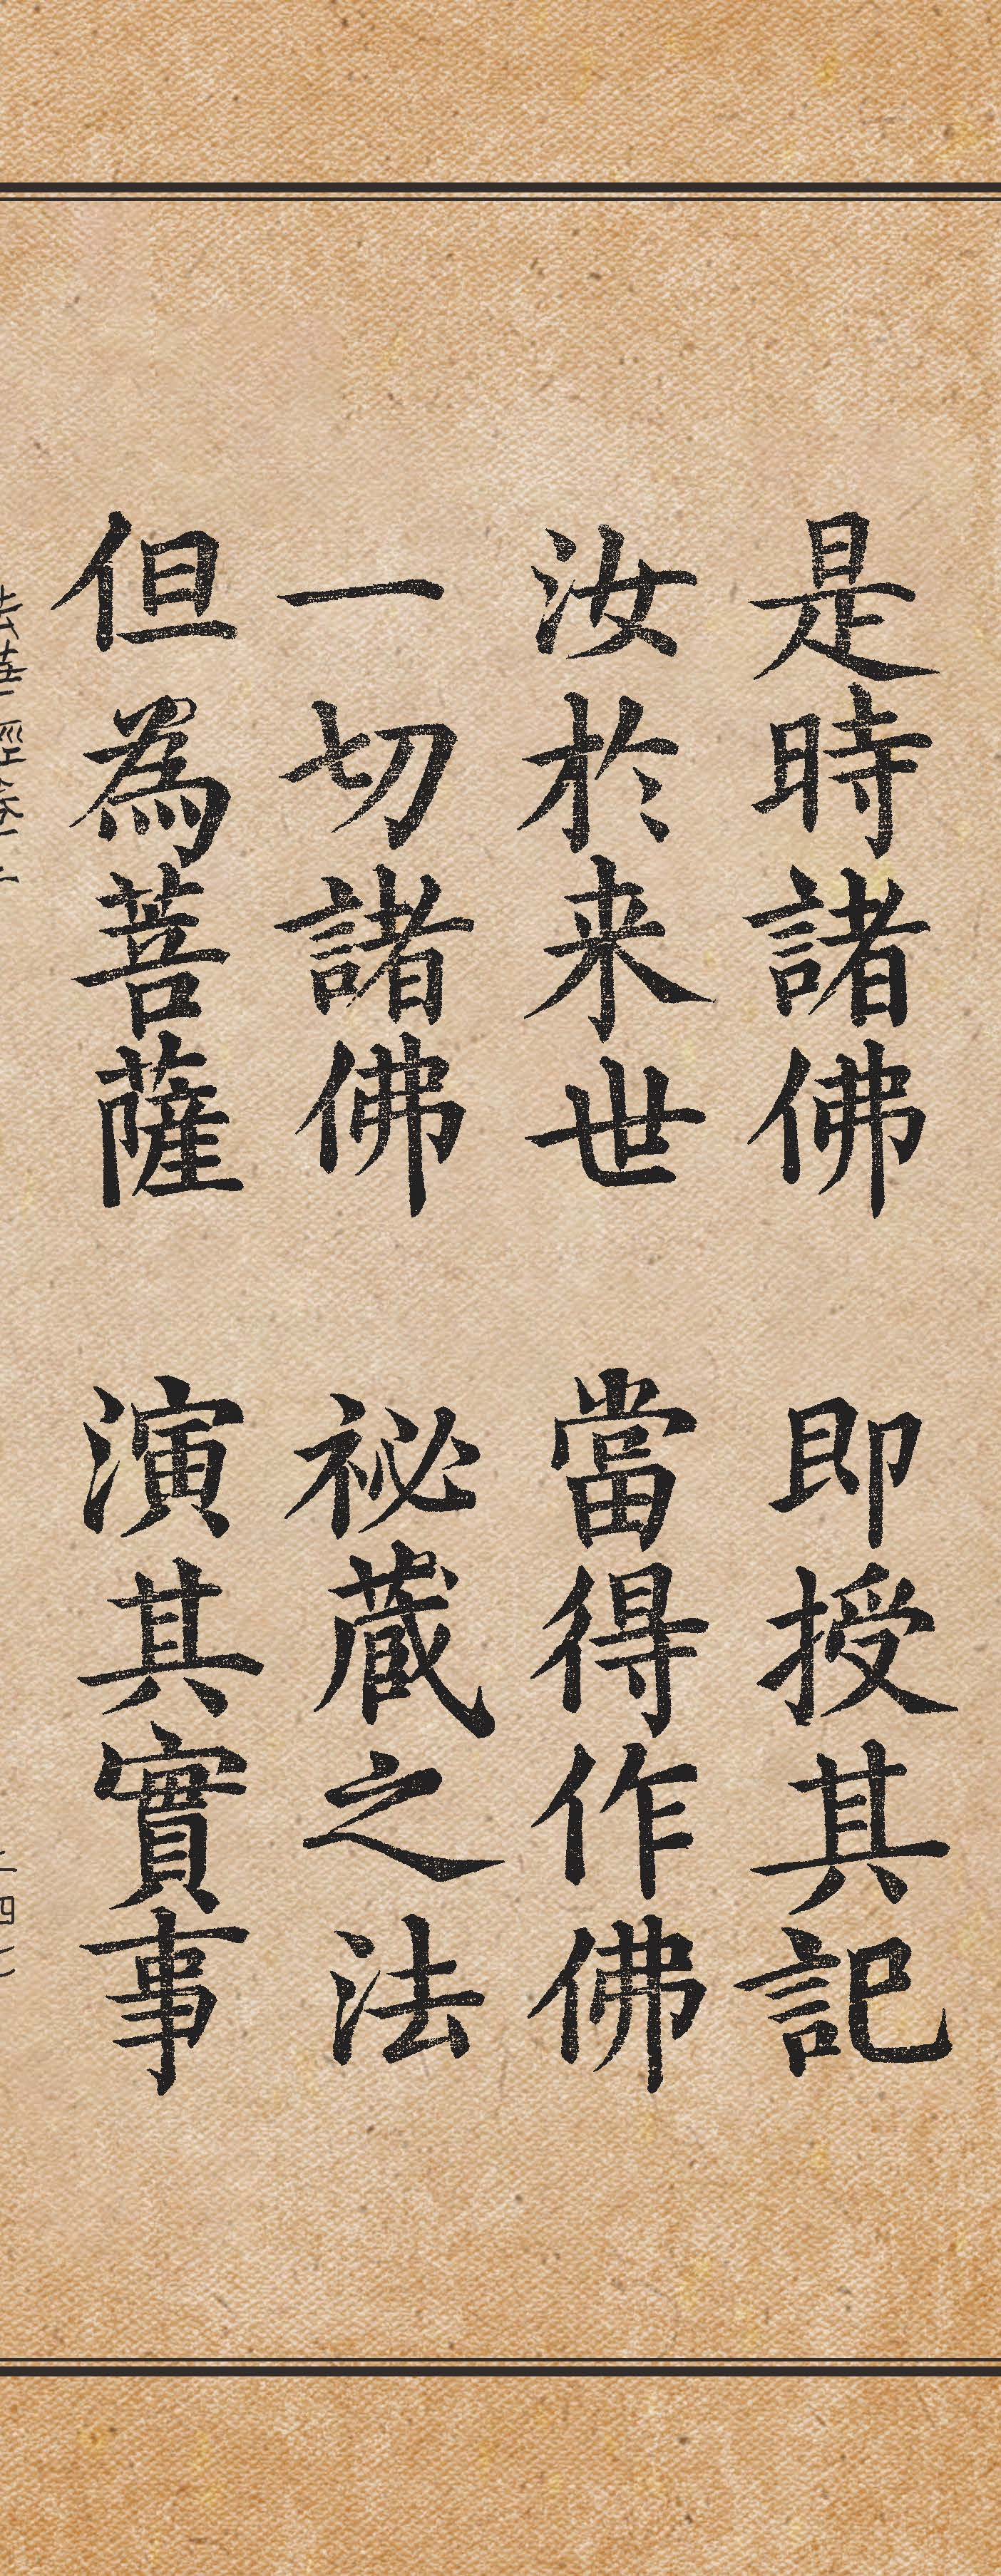 是時諸佛　即授其記
汝於来世　當得作佛
一切諸佛　祕蔵之法
但為菩薩　演其實事